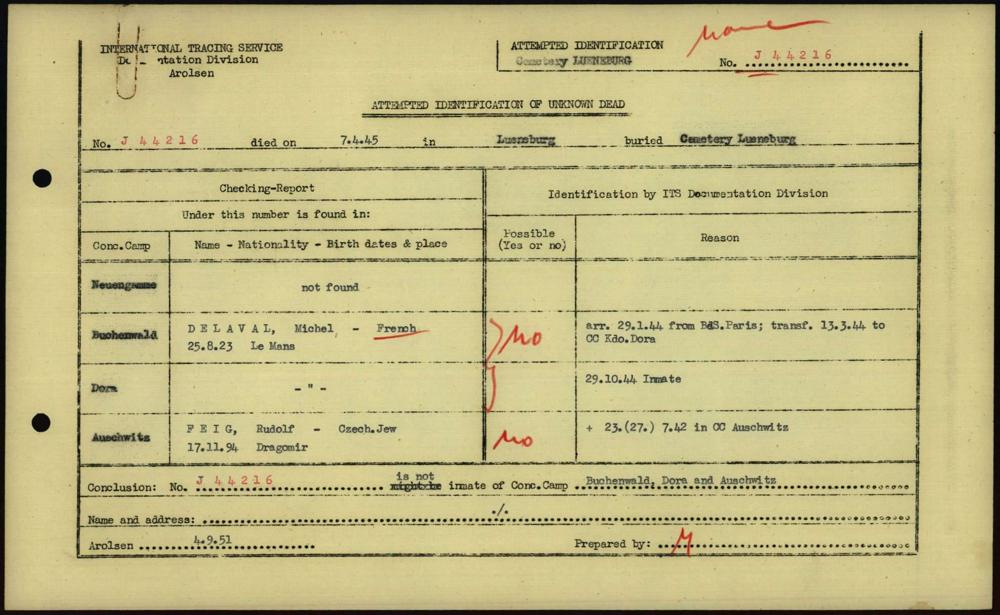 INTERNATIONAL TRACING SERVICE
Documentation Division
Arolsen
ATTEMPTED IDENTIFICATION
Cemetery LUENEBURG
No. J 44216
ATTEMPTED IDENTIFICATION OF UNKNOWN DEAD
No. J 44216 died on 7.4.45 in Lueneburg buried Cemetery Lueneburg
Checking-Report
Under this number is found in:
Identification by ITS Documentation Division
Conc.Camp
Name - Nationality - Birth dates & place
Possible
(Yes or no)
Reason
Neuengamme
not found
Buchenwald
DELAVAL, Michel - French
25.8.23 Le Mans
No
arr. 29.1.44 from BdS.Paris; transf. 13.3.44 to
CC Kdo.Dora
Dora
- " -
29.10.44 Inmate
Auschwitz
FEIG, Rudolf - Czech.Jew
17.11.94 Dragomir
No
+ 23.(27.) 7.42 in CC Auschwitz
is not
Conclusion: No. J 44216 might be inmate of Conc.Camp Buchenwald, Dora and Auschwitz
Name and address: ./.
Arolsen 4.9.51
Prepared by: